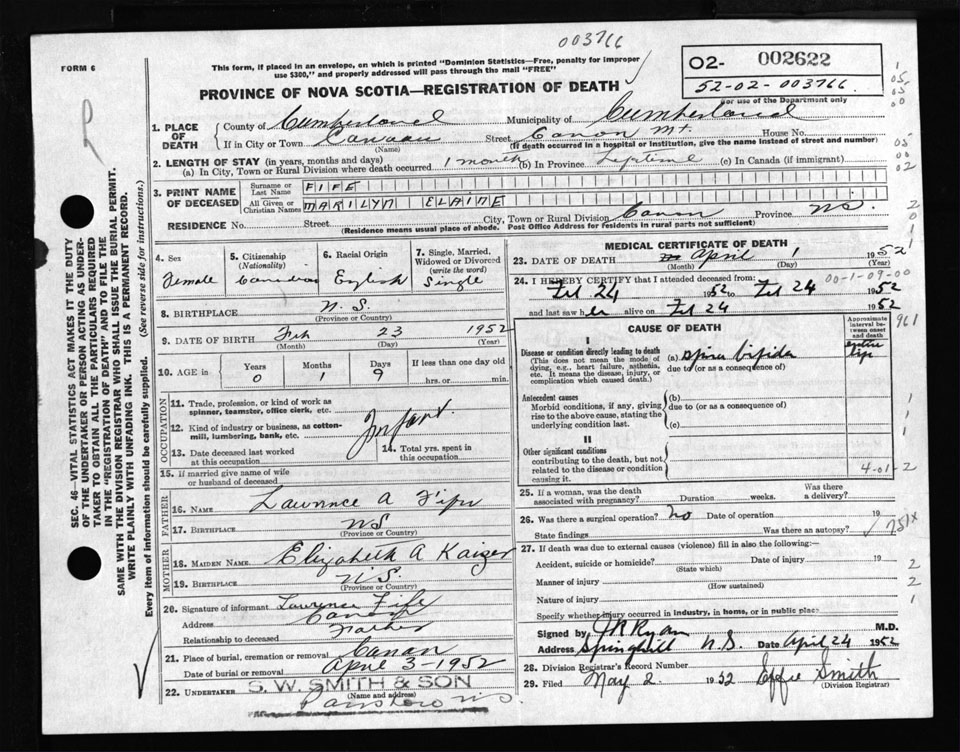 003766
FORM 6
This form, if placed in an envelope, on which is printed "Dominion Statistics—Free, penalty for improper
use $300," and properly addressed will pass through the mail "FREE"
02- 002622
52-02-003766
For use of the Department only
PROVINCE OF NOVA SCOTIA—REGISTRATION OF DEATH
1. PLACE OF DEATH
County of Cumberland Municipality of Cumberland
If in City or Town Canaan Street Canon Mt. House No.
(Name) (If death occurred in a hospital or institution, give the name instead of street and number)
2. LENGTH OF STAY (in years, months and days)
(a) In City, Town or Rural Division where death occurred 1 month (b) In Province Lifetime (c) In Canada (if immigrant)
3. PRINT NAME OF DECEASED
Surname or Last Name FIFE
All Given or Christian Names MARILYN ELAINE
RESIDENCE No. Street City, Town or Rural Division Canon Province N.S.
(Residence means usual place of abode. Post Office Address for residents in rural parts not sufficient)
4. Sex Female
5. Citizenship (Nationality) Canadian
6. Racial Origin English
7. Single, Married, Widowed or Divorced (write the word) Single
8. BIRTHPLACE N.S.
(Province or Country)
9. DATE OF BIRTH Feb 23 1952
(Month) (Day) (Year)
10. AGE in Years 0 Months 1 Days 9 If less than one day old hrs. or min.
OCCUPATION
11. Trade, profession, or kind of work as spinner, teamster, office clerk, etc.
12. Kind of industry or business, as cotton-mill, lumbering, bank, etc.
Infant
13. Date deceased last worked at this occupation
14. Total yrs. spent in this occupation
15. If married give name of wife or husband of deceased
FATHER
16. NAME Lawrence A Fife
17. BIRTHPLACE NS
(Province or Country)
MOTHER
18. MAIDEN NAME Elizabeth A Kaizer
19. BIRTHPLACE N.S.
(Province or Country)
20. Signature of informant Lawrence Fife
Address Canon
Relationship to deceased Father
21. Place of burial, cremation or removal Canan
Date of burial or removal April 3-1952
22. UNDERTAKER S. W. SMITH & SON
(Name and address)
Parrsboro N.S.
MEDICAL CERTIFICATE OF DEATH
23. DATE OF DEATH April 1 1952
(Month) (Day) (Year)
24. I HEREBY CERTIFY that I attended deceased from: 00-1-09-00
Feb 24 1952 to Feb 24 1952
and last saw her alive on Feb 24 1952
CAUSE OF DEATH
Approximate interval between onset and death
961
I
Disease or condition directly leading to death
(This does not mean the mode of dying, e.g., heart failure, asthenia, etc. It means the disease, injury, or complication which caused death.)
(a) Spina bifida entire life
due to (or as a consequence of)
Antecedent causes
Morbid conditions, if any, giving rise to the above cause, stating the underlying condition last.
(b)
due to (or as a consequence of)
(c)
II
Other significant conditions
contributing to the death, but not related to the disease or condition causing it.
4-01-2
25. If a woman, was the death associated with pregnancy? Duration weeks. Was there a delivery?
26. Was there a surgical operation? no Date of operation 19
State findings Was there an autopsy?
751x
27. If death was due to external causes (violence) fill in also the following:
Accident, suicide or homicide? Date of injury 19
(State which)
Manner of injury
(How sustained)
Nature of injury
Specify whether injury occurred in industry, in home, or in public place
Signed by J R Ryan M.D.
Address Springhill N.S. Date April 24 1952
28. Division Registrar's Record Number
29. Filed May 2 1952 Effie Smith
(Division Registrar)
SEC. 46—VITAL STATISTICS ACT MAKES IT THE DUTY
OF THE UNDERTAKER OR PERSON ACTING AS UNDER-
TAKER TO OBTAIN ALL THE PARTICULARS REQUIRED
IN THE "REGISTRATION OF DEATH" AND TO FILE THE
SAME WITH THE DIVISION REGISTRAR WHO SHALL ISSUE THE BURIAL PERMIT.
WRITE PLAINLY WITH UNFADING INK. THIS IS A PERMANENT RECORD.
Every item of information should be carefully supplied. (See reverse side for instructions.)